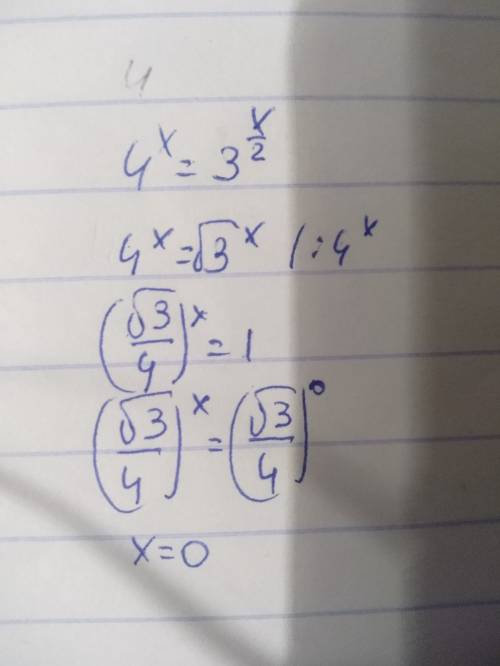 4
4^x = 3^(x/2)
4^x = √3^x / : 4^x
(√3/4)^x = 1
(√3/4)^x = (√3/4)^0
x = 0